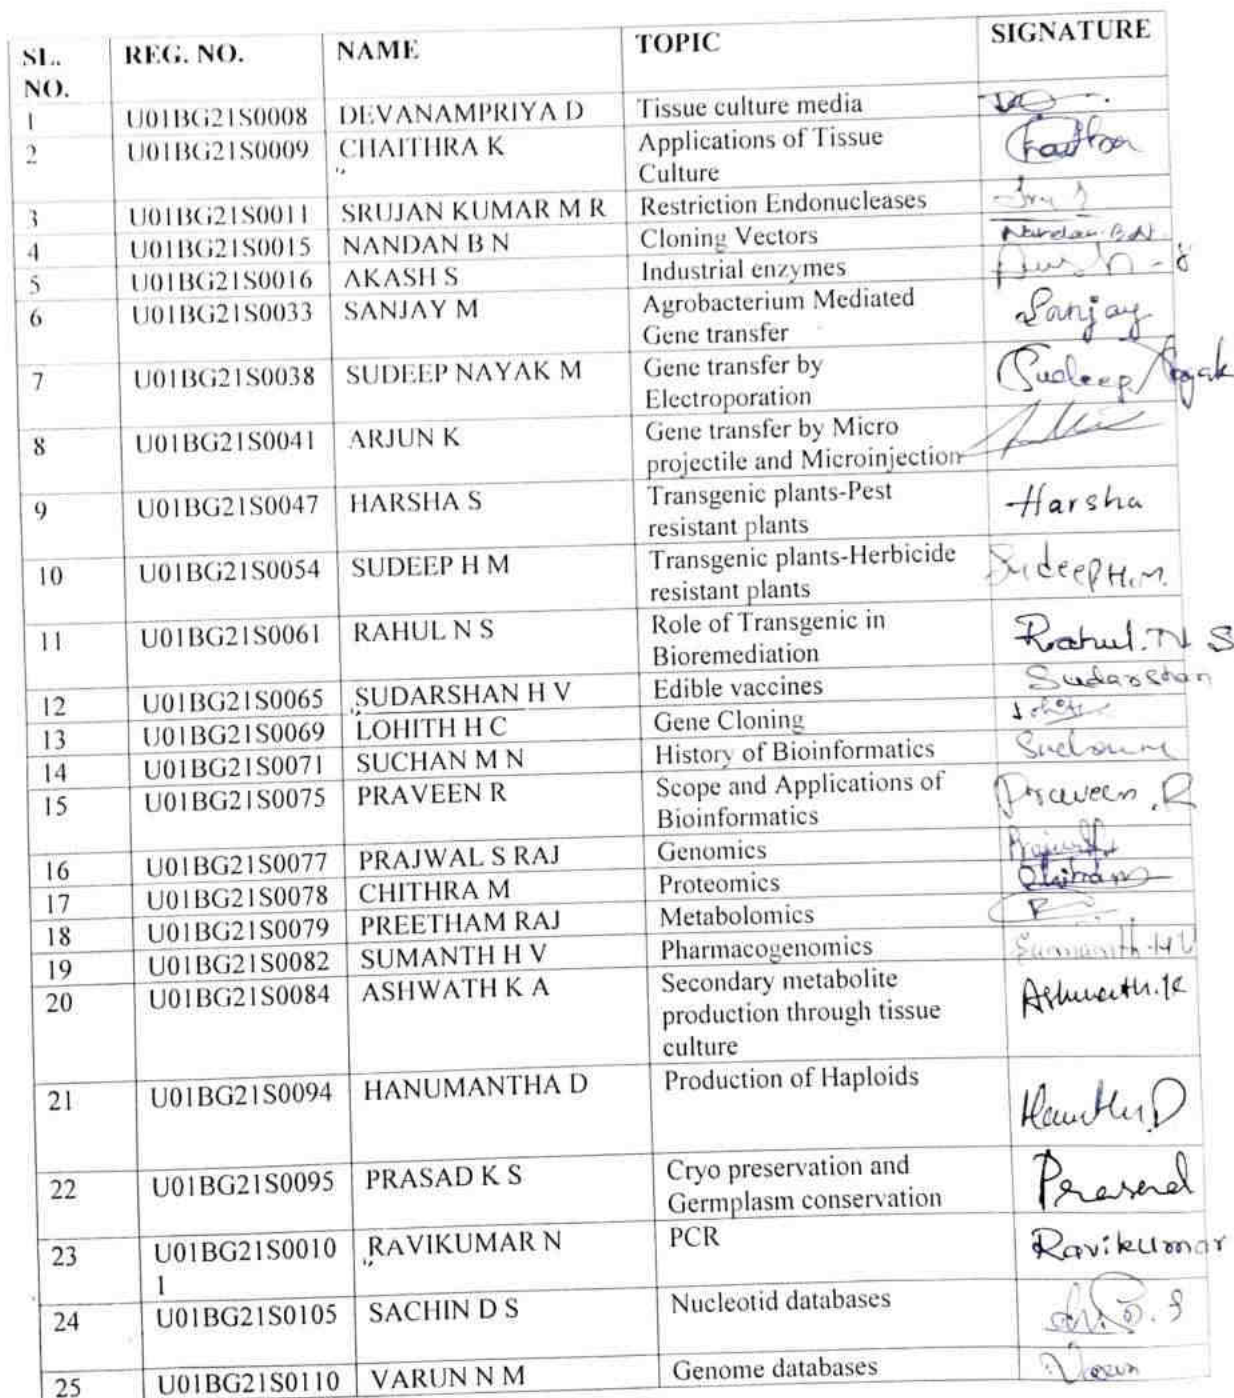 SL. NO. REG. NO. NAME TOPIC SIGNATURE
1 U01BG21S0008 DEVANAMPRIYA D Tissue culture media
2 U01BG21S0009 CHAITHRA K Applications of Tissue
Culture
3 U01BG21S0011 SRUJAN KUMAR M R Restriction Endonucleases
4 U01BG21S0015 NANDAN B N Cloning Vectors Nandan B.N.
5 U01BG21S0016 AKASH S Industrial enzymes
6 U01BG21S0033 SANJAY M Agrobacterium Mediated Sanjay
Gene transfer
7 U01BG21S0038 SUDEEP NAYAK M Gene transfer by Sudeep Nayak
Electroporation
8 U01BG21S0041 ARJUN K Gene transfer by Micro
projectile and Microinjection
9 U01BG21S0047 HARSHA S Transgenic plants-Pest Harsha
resistant plants
10 U01BG21S0054 SUDEEP H M Transgenic plants-Herbicide Sudeep H.M.
resistant plants
11 U01BG21S0061 RAHUL N S Role of Transgenic in Rahul. N S
Bioremediation
12 U01BG21S0065 SUDARSHAN H V Edible vaccines Sudarshan
13 U01BG21S0069 LOHITH H C Gene Cloning
14 U01BG21S0071 SUCHAN M N History of Bioinformatics
15 U01BG21S0075 PRAVEEN R Scope and Applications of Praveen .R
Bioinformatics
16 U01BG21S0077 PRAJWAL S RAJ Genomics
17 U01BG21S0078 CHITHRA M Proteomics
18 U01BG21S0079 PREETHAM RAJ Metabolomics
19 U01BG21S0082 SUMANTH H V Pharmacogenomics Sumanth.H V
20 U01BG21S0084 ASHWATH K A Secondary metabolite Ashwath.K
production through tissue
culture
21 U01BG21S0094 HANUMANTHA D Production of Haploids
22 U01BG21S0095 PRASAD K S Cryo preservation and Prasad
Germplasm conservation
23 U01BG21S0010 RAVIKUMAR N PCR Ravikumar
1
24 U01BG21S0105 SACHIN D S Nucleotid databases
25 U01BG21S0110 VARUN N M Genome databases Varun